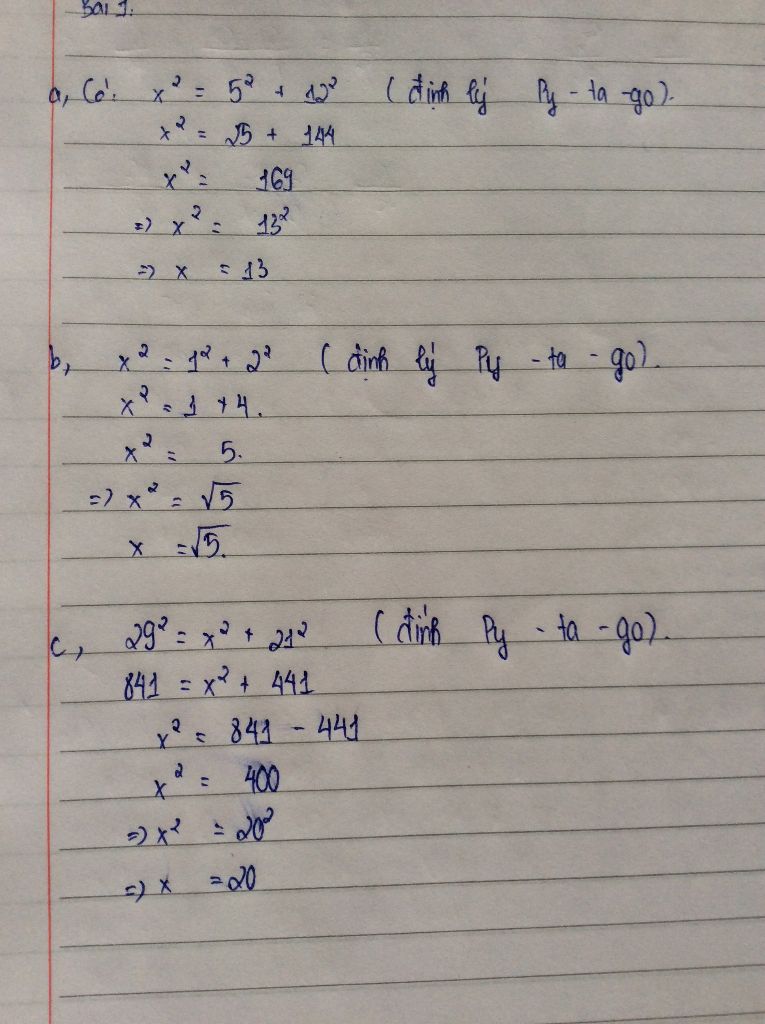 Bài 1.
a, Có: x² = 5² + 12² (định lý Py - ta - go).
x² = 25 + 144
x² = 169
=> x² = 13²
=> x = 13
b, x² = 1² + 2² (định lý Py - ta - go).
x² = 1 + 4.
x² = 5.
=> x² = √5
x = √5.
c, 29² = x² + 21² (định Py - ta - go).
841 = x² + 441
x² = 841 - 441
x² = 400
=> x² = 20²
=> x = 20